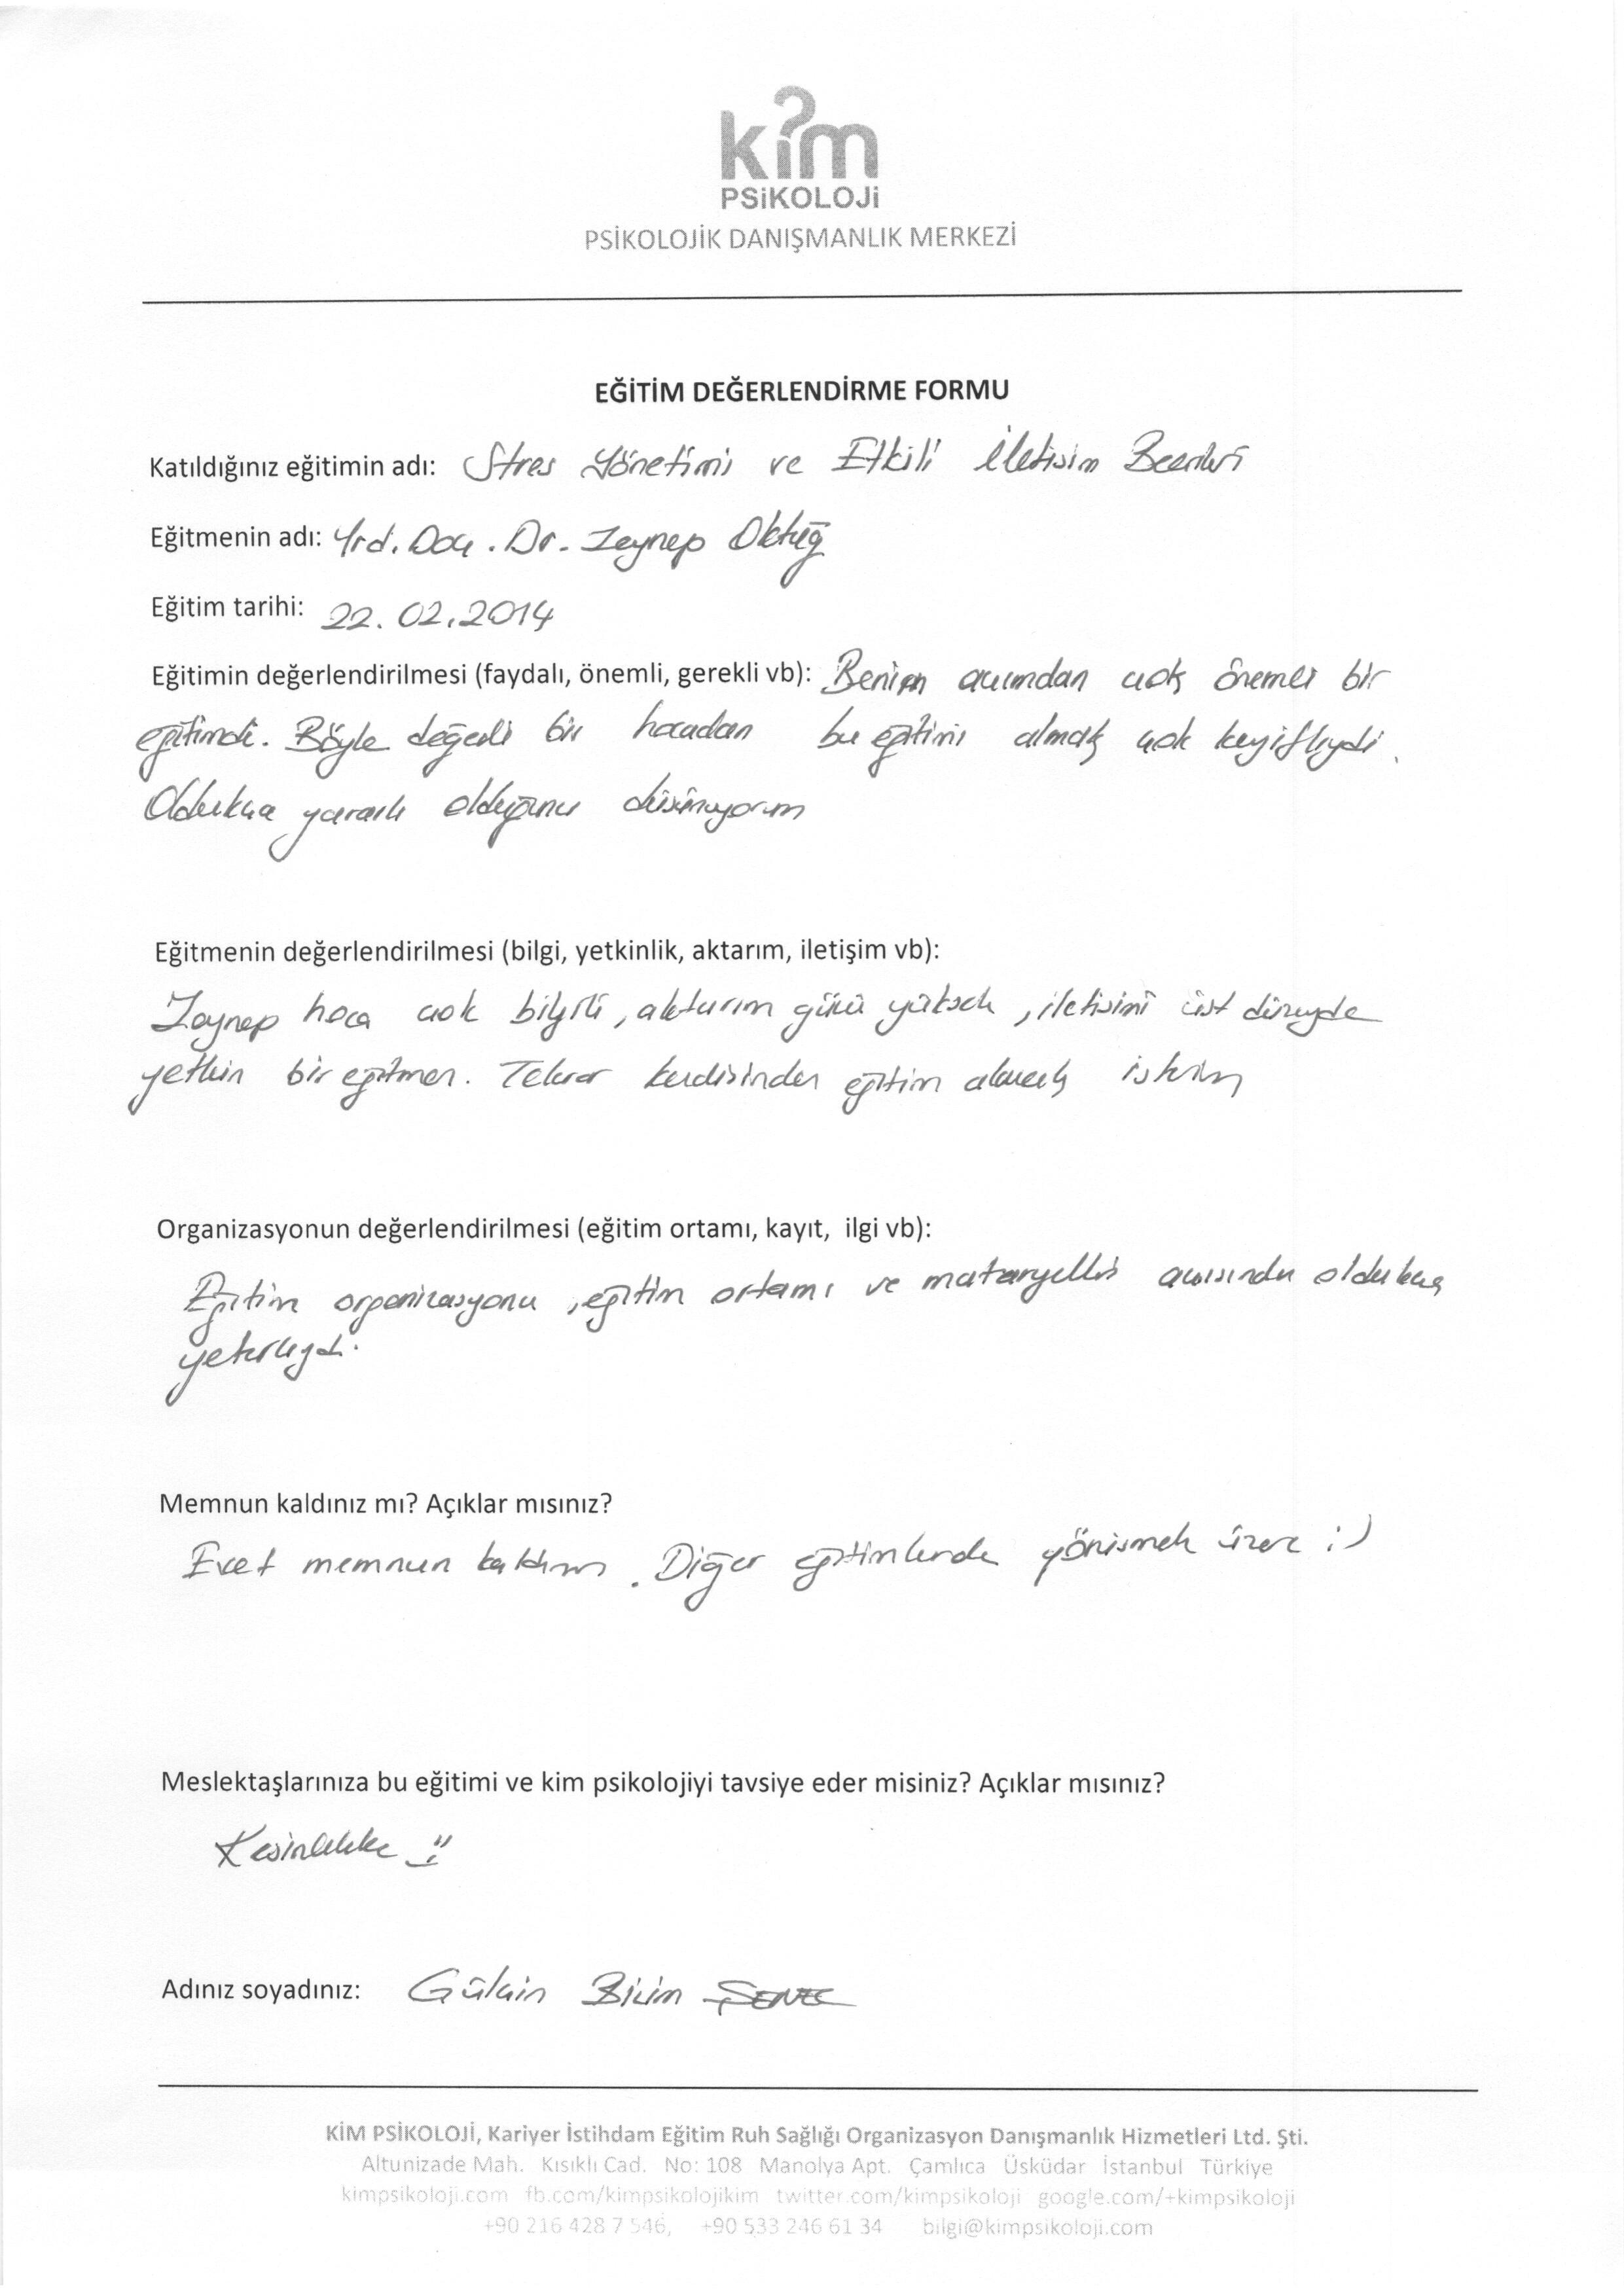 kim
PSiKOLOJi
PSİKOLOJİK DANIŞMANLIK MERKEZİ
EĞİTİM DEĞERLENDİRME FORMU
Katıldığınız eğitimin adı: Stres Yönetimi ve Etkili İletişim Becerileri
Eğitmenin adı: Yrd. Doç. Dr. Zeynep Oktuğ
Eğitim tarihi: 22.02.2014
Eğitimin değerlendirilmesi (faydalı, önemli, gerekli vb): Benim açımdan çok önemli bir
eğitimdi. Böyle değerli bir hocadan bu eğitimi almak çok keyifliydi.
Oldukça yararlı olduğunu düşünüyorum
Eğitmenin değerlendirilmesi (bilgi, yetkinlik, aktarım, iletişim vb):
Zeynep hoca çok bilgili, aktarım gücü yüksek, iletişimi üst düzeyde
yetkin bir eğitmen. Tekrar kendisinden eğitim almak isterim
Organizasyonun değerlendirilmesi (eğitim ortamı, kayıt, ilgi vb):
Eğitim organizasyonu, eğitim ortamı ve materyalleri açısından oldukça
yeterliydi.
Memnun kaldınız mı? Açıklar mısınız?
Evet memnun kaldım. Diğer eğitimlerde görüşmek üzere :)
Meslektaşlarınıza bu eğitimi ve kim psikolojiyi tavsiye eder misiniz? Açıklar mısınız?
Kesinlikle
Adınız soyadınız: Gülçin Biçim
KİM PSİKOLOJİ, Kariyer İstihdam Eğitim Ruh Sağlığı Organizasyon Danışmanlık Hizmetleri Ltd. Şti.
Altunizade Mah. Kısıklı Cad. No: 108 Manolya Apt. Çamlıca Üsküdar İstanbul Türkiye
kimpsikoloji.com fb.com/kimpsikolojikim twitter.com/kimpsikoloji google.com/+kimpsikoloji
+90 216 428 7 546, +90 533 246 61 34 bilgi@kimpsikoloji.com